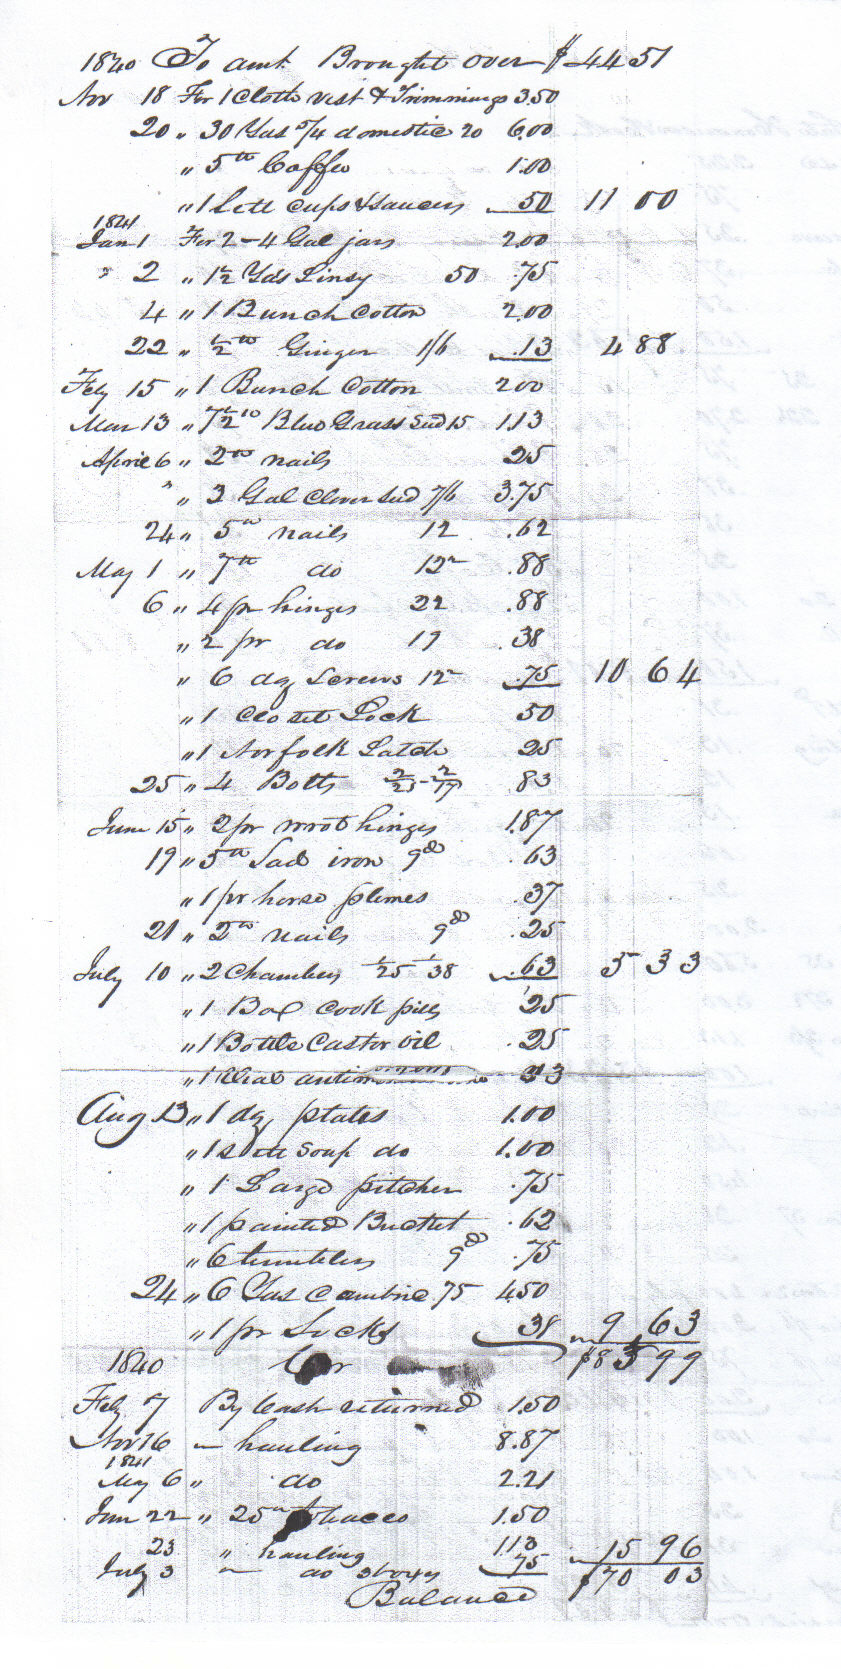 1840 To amt. Brought over $44 51
Nov 18 For 1 Cloth vest & Trimmings 3.50
20 " 30 Yds 5/4 domestic 20 6.00
" 5 lb Coffee 1.00
" 1 Sett Cups & Saucers 50 11 00
1841
Jan 1 For 2-4 Gal jars 2.00
" 2 " 1½ Yds Linsy 50 .75
4 " 1 Bunch Cotton 2.00
22 " ½ lb Ginger 1/6 .13 4 88
Feby 15 " 1 Bunch Cotton 2.00
Mar 13 " 7½ lb Blue Grass Seed 15 1.13
April 6 " 2 lb nails 25
" " 3 Gal Clover Seed 7/6 3.75
24 " 5 lb nails 12 .62
May 1 " 7 lb do 12 .88
6 " 4 pr hinges 22 .88
" 2 pr do 19 .38
" 6 dz Screws 12 .75 10 64
" 1 Closet Lock 50
" 1 Norfolk Latch 25
25 " 4 Bolts 2/25 - 2/17 83
June 15 " 2 pr wrot hinges 1.87
19 " 5 lb Sad iron 9d .63
" 1 pr horse flemes .37
21 " 2 lb nails 9d .25
July 10 " 2 Chambers 1/25 1/38 .63 5 33
" 1 Box Cook pills 25
" 1 Bottle Castor oil .25
" 1 Vial 13
Aug 13 " 1 dz plates 1.00
" 1 Sett Soup do 1.00
" 1 Large pitcher .75
" 1 painted Bucket .62
" 6 tumblers 9d .75
24 " 6 Yds Cambric 75 4.50
" 1 pr Socks 38 9 63
1840 Cr $85 99
Feby 7 By Cash returned 1.50
Nov 16 " hauling 8.87
1841
May 6 " do 2.21
Jun 22 " 25 lb tobacco 1.50
23 " hauling 1.13 15 96
July 3 " do 75 $70 03
Balance